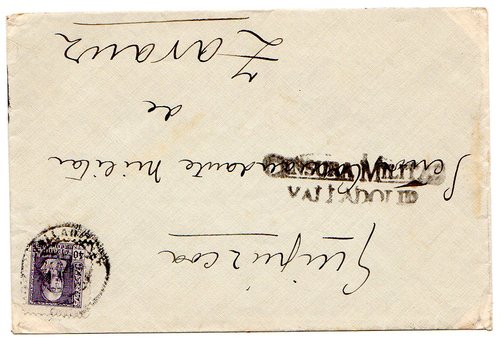 Guipúzcoa
Señor Comandante Militar
de
Zarauz
CENSURA MILITAR
VALLADOLID